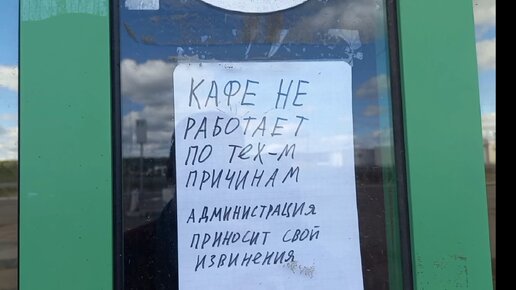 КАФЕ НЕ
РАБОТАЕТ
ПО ТЕХ-М
ПРИЧИНАМ
АДМИНИСТРАЦИЯ
ПРИНОСИТ СВОЙ
ИЗВИНЕНИЯ